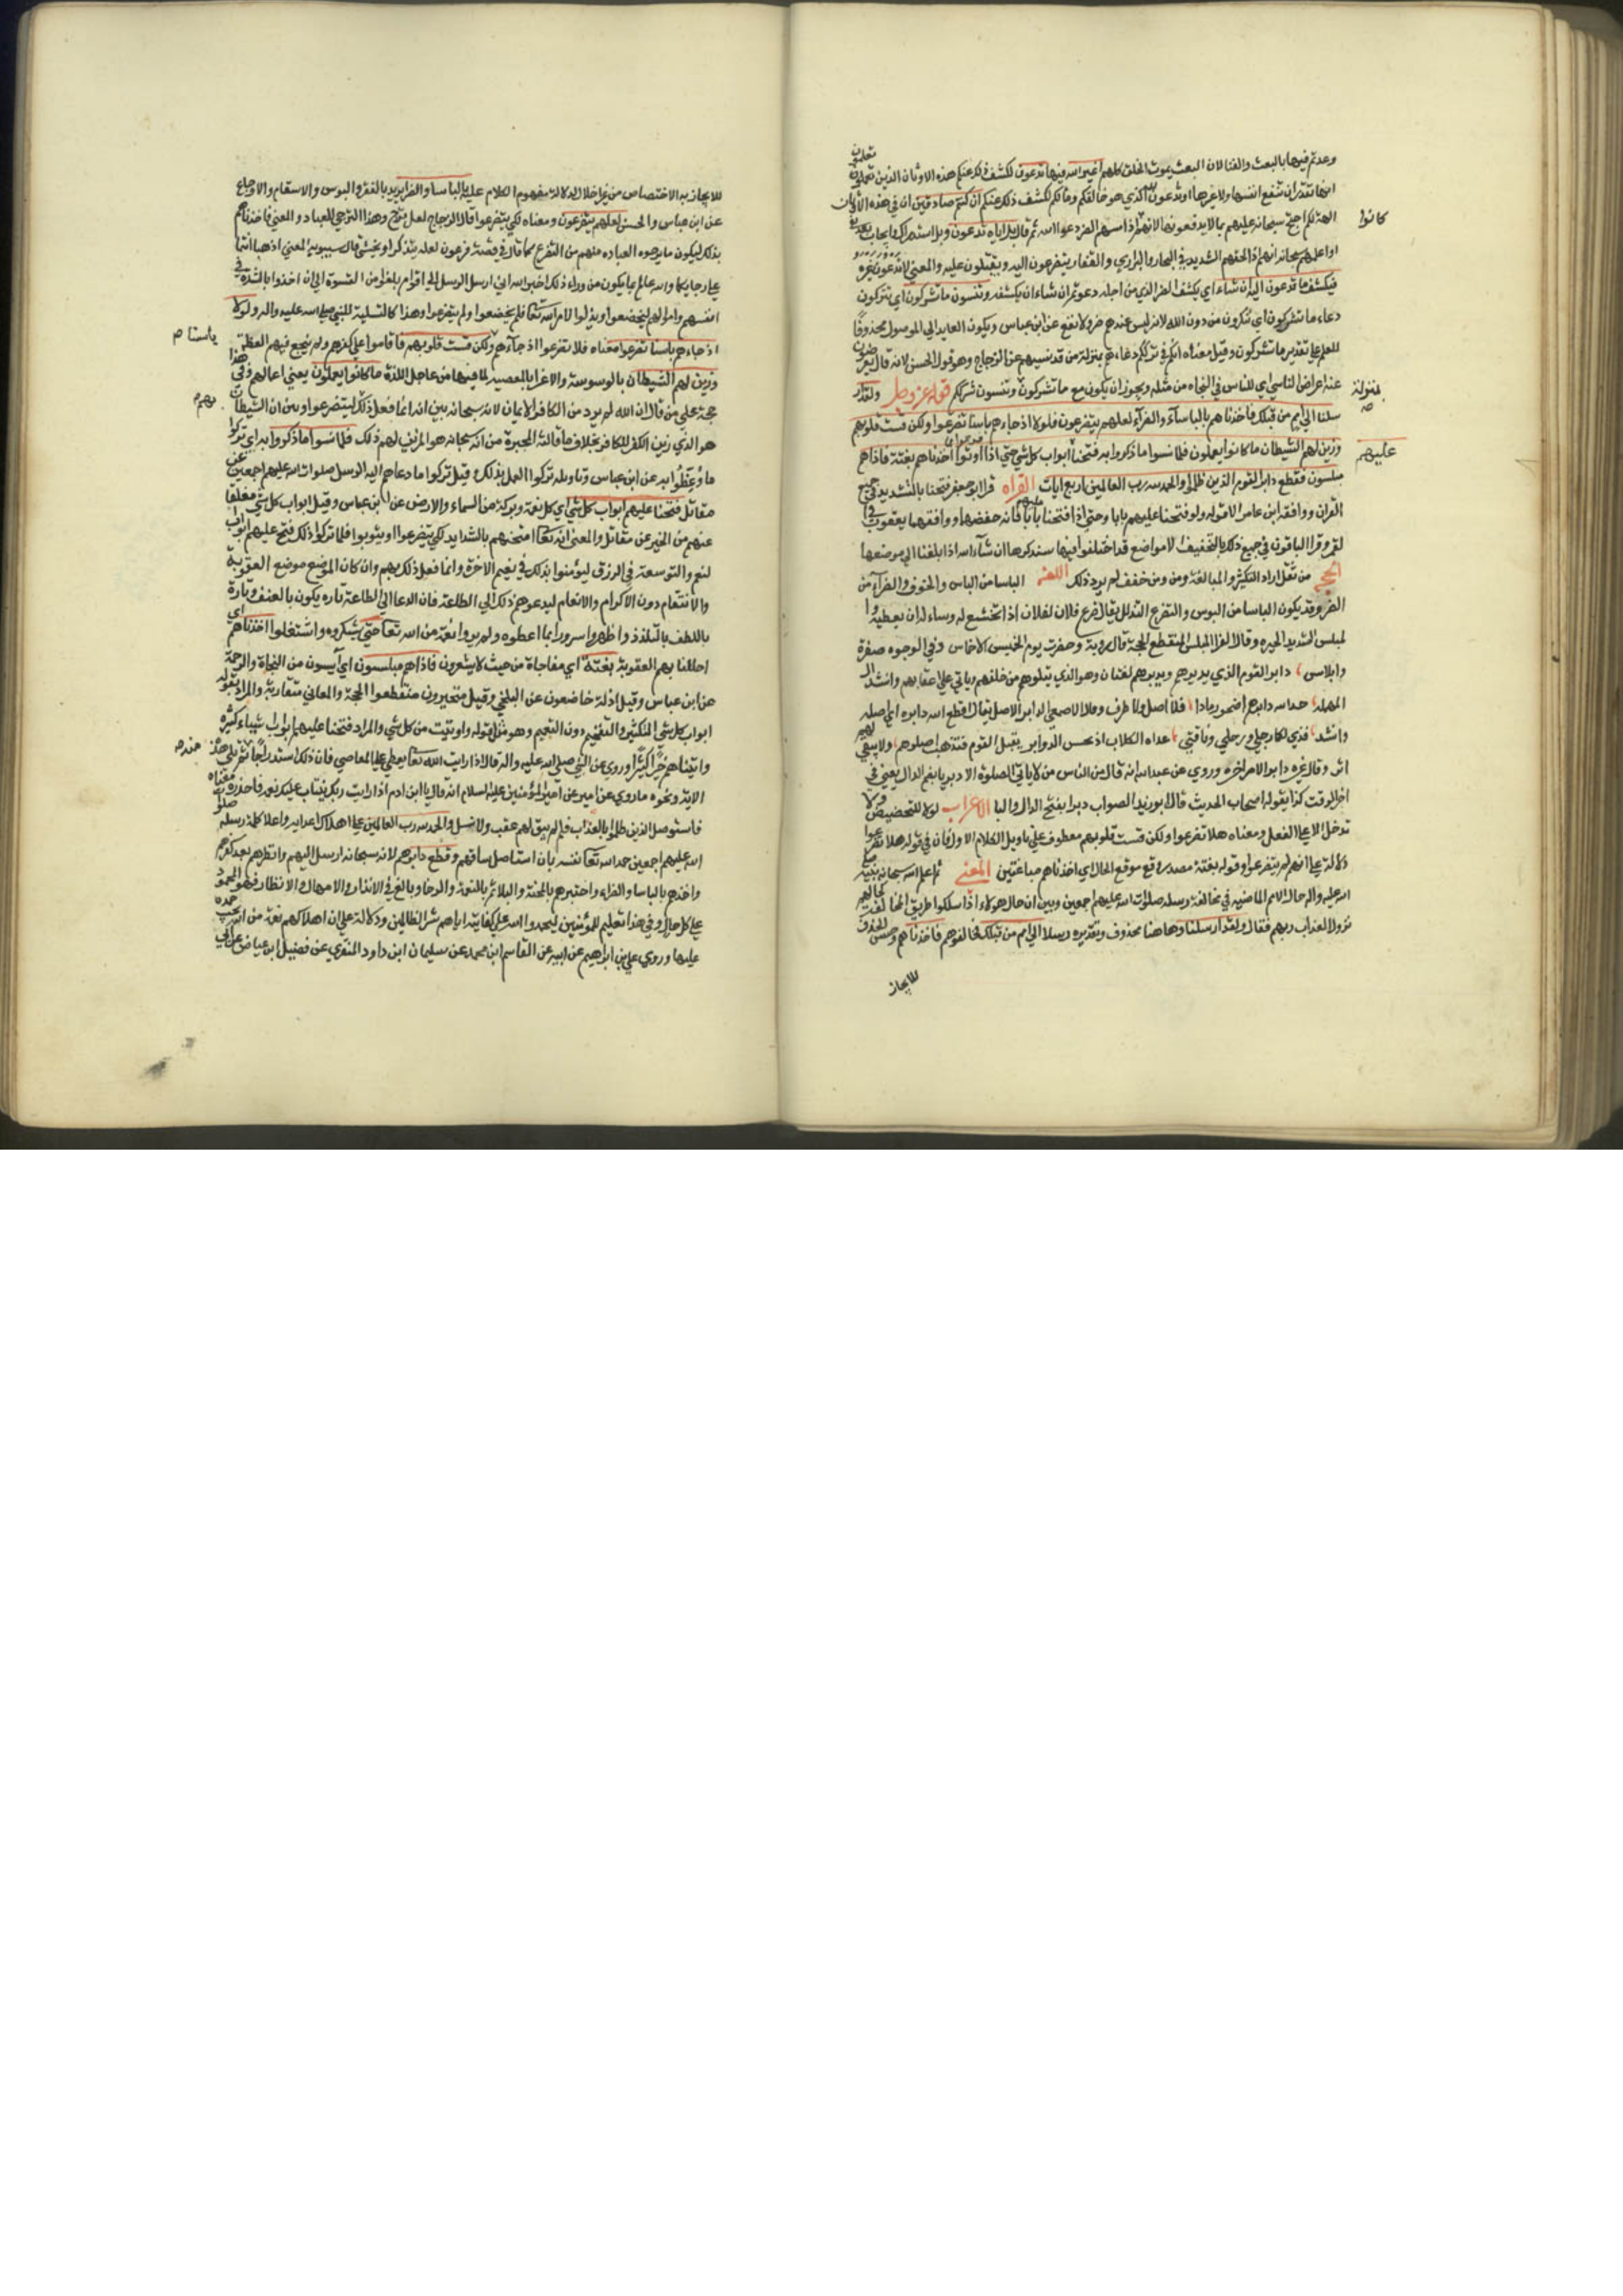 وعدتم فيها بالبعث والفنا لان البعث يموت الخلق كلهم اغير الله فيها تدعون لكشف ذلك عنكم هذه الاوثان الذين تعلمون
انها لا تقدر ان تنفع انفسها ولا غيرها او تدعون الله الذي هو خالقكم ومالككم لكشف ذلك عنكم ان كنتم صادقين ان في هذه الاوثان
الهة لكم احتج سبحانه عليهم بما لا يدفعونه لانهم اذا مسهم الضر دعوا الله ثم قال بل اياه تدعون وبل استدراك وايجاب بعد نفي
كانوا
او اعلمهم سبحانه انهم اذا لحقهم الشديد في البحار والبراري والقفار يتضرعون اليه ويقبلون عليه والمعنى لا تدعون غيره
فيكشف ما تدعون اليه ان شاء اي يكشف الضر الذي من اجله دعوتم ان شاء ان يكشفه وتنسون ما تشركون اي تتركون
دعاء ما تشركون اي تتركون من دون الله لانه ليس عندهم ضر ولا نفع عن ابن عباس ويكون العايد الى الموصول محذوفا
للعلم على تقدير ما تشركون وقيل معناه انكم في ترككم دعاءهم بمنزلة من قد نسيهم عن الزجاج وهو قول الحسن لانه قال يعرضون
عنه اعراض الناسي اي للناس في النجاه من مثله ويجوز ان يكون مع ما تشركون وتنسون شرككم قوله عز وجل ولقد ار
بمنزلة
سلنا الى امم من قبلك فاخذناهم بالباساء والضراء لعلهم يتضرعون فلولا اذ جاءهم باسنا تضرعوا ولكن قست قلوبهم
وزين لهم الشيطان ما كانوا يعملون فلما نسوا ما ذكروا به فتحنا ابواب كل شي حتى اذا فرحوا بما اوتوا اخذناهم بغتة فاذا هم
عليهم
مبلسون فقطع دابر القوم الذين ظلموا والحمد لله رب العالمين اربع ايات القراه قرا ابو جعفر فتحنا بالتشديد في جميع
القران ووافقه ابن عامر الا قوله ولو فتحنا عليهم بابا وحتى اذا فتحنا عليهم بابا فانه خففها ووافقهما يعقوب في
القمر وقرا الباقون في جميع ذلك بالتخفيف الا مواضع قد اختلفوا فيها سنذكرها ان شاء الله اذا بلغنا الى موضعها
الحجه من ثقل اراد التكثير والمبالغة ومن خفف لم يرد ذلك اللغه الباسا من الباس والخوف والضراء من
الضر وقد يكون الباسا من البوس والتضرع التذلل يقال ضرع فلان لفلان اذا تخشع له وساله ان يعطيه وا
لمبلس الشديد الحيره وقال الفرا المبلس المنقطع الحجة قال روبة وحضرت يوم الخميس الاخماس وفي الوجوه صفرة
وابلاس دابر القوم الذي يدبرهم ويدبرهم لغتان وهو الذي يتلوهم من خلفهم وياتي على اعقابهم وانشد
المهلب حدا سه دابرهم اضحو رمادا فلا اصل ولا طرف وقال الاصمعي الدابر الاصل يقال قطع الله دابره اي اصله
وانشد فدي لكما رجلي ورحلي وناقتي غداة الكلاب اذ تحس الدوابر يقتل القوم فتذهب اصلوهم ولا يبقى لهم
اثر وقال غيره دابر الامر اخره وروي عن عبد الله انه قال من الناس من لا ياتي الصلوة الا دبريا بضم الدال يعني في
اخر الوقت كذا يقوله اصحاب الحديث قال ابو زيد الصواب دبريا بفتح الدال والبا الاعراب لولا للتحضيض ولا
تدخل الا على الفعل ومعناه هلا تضرعوا ولكن قست قلوبهم معطوف على تاويل الكلام الاول فان في قوله هلا تضرعوا
دلالة على انهم لم يتضرعوا وقوله بغتة مصدر وقع موقع الحال اي اخذناهم مباغتين المعنى ثم اعلم الله سبحانه نبيه صلى
الله عليه واله حال الامم الماضيه في مخالفة رسله صلوات الله عليهم اجمعين وبين ان حال هولاء اذا سلكوا طريق المخالفة كحالهم
نزول العذاب بهم فقال ولقد ارسلنا وهاهنا محذوف وتقديره رسلا الى امم من قبلك فخالفوهم فاخذناهم وحسن الحذف
للايجاز
للايجاز به الاختصاص من غير اخلال لدلالة مفهوم الكلام عليه بالباسا والضرا يريد بالفقر والبوس والاسقام والاوجاع
عن ابن عباس والحسن لعلهم يتضرعون ومعناه لكي يتضرعوا قال الزجاج لعل ترج وهذا الترجي للعباد والمعنى فاخذناهم
بذلك ليكون ما يرجوه العباد منهم من التضرع كما قال في قصة فرعون لعله يتذكر او يخشى قال سيبويه المعنى اذهبا انتما
على رجايكما والله عالم بما يكون من وراء ذلك اخبر الله انه ارسل الرسل الى اقوام بلغوا من القسوة الى ان اخذوا بالشدة في
انفسهم واموالهم ليخضعوا ويذلوا لامر الله تعالى فلم يخضعوا ولم يتضرعوا وهذا كالتسلية للنبي صلى الله عليه واله ولولا
اذ جاءهم باسنا تضرعوا معناه فلا تضرعوا اذ جاءهم ولكن قست قلوبهم فاقاموا على كفرهم ولم ينجع فيهم العظة
باسنا
وزين لهم الشيطان بالوسوسة والاغرا بالمعصيه لما فيها من عاجل اللذة ما كانوا يعملون يعني اعمالهم وفي هذا
حجة على من قال ان الله لم يرد من الكافر الايمان لانه سبحانه بين انه انما فعل ذلك ليتضرعوا وبين ان الشيطان
بهم
هو الذي زين الكفر للكافر بخلاف ما قالته المجبرة من انه سبحانه هو المزين لهم ذلك فلما نسوا ما ذكروا به اي تركوا
ما وعظوا به عن ابن عباس وتاويله تركوا العمل بذلك وقيل تركوا ما دعاهم اليه الرسل صلوات الله عليهم اجمعين عن
مقاتل فتحنا عليهم ابواب كل شي اي كل نعمة وبركة من السماء والارض عن ابن عباس وقيل ابواب كل شي مغلقا
عنهم من الخير عن مقاتل والمعنى انه تعالى امتحنهم بالشدايد لكي يتضرعوا ويتوبوا فلما تركوا ذلك فتح عليهم ابواب
لنعم والتوسعة في الرزق ليؤمنوا بذلك في نعيم الاخرة وانما فعل ذلك بهم وان كان الموضع موضع العقوبة
والانتقام دون الاكرام والانعام ليدعوهم ذلك الى الطاعة فان الدعا الى الطاعة تاره يكون بالعنف وتارة
باللطف بالتلذذ واظهروا سرورا بما اعطوه ولم يروا نعمة من الله تعالى حتى يشكروه واشتغلوا اخذناهم اي
احللنا بهم العقوبة بغتة اي مفاجاة من حيث لا يشعرون فاذا هم مبلسون اي آيسون من النجاة والرحمة
عن ابن عباس وقيل اذلة خاضعون عن البلخي وقيل متحيرون منقطعوا الحجة والمعاني متقاربة والمراد بقوله
ابواب كل شي التكثير والتفخيم دون التعميم وهو مثل قوله واوتيت من كل شي والمراد فتحنا عليهم ابواب اشياء كثيرة
واتيناهم خيرا كثيرا وروي عن النبي صلى الله عليه واله قال اذا رايت الله تعالى يعطي على المعاصي فان ذلك استدراجا ثم تلا هذه
الايه ونحوه ما روي عن امير المؤمنين عليه السلام انه قال يا ابن ادم اذا رايت ربك يتابع عليك نعمه فاحذره
فاستوصل الذين ظلموا بالعذاب فلم يبق لهم عقب ولا نسل والحمد لله رب العالمين على اهلاك اعدايه واعلا كلمة رسله
الله عليهم اجمعين حمد الله تعالى نفسه بان استاصل شافتهم وقطع دابرهم لانه سبحانه ارسل اليهم وانظرهم بعد كفرهم
واخذهم بالباسا والضراء واختبرهم بالمحنة والبلاء ثم بالنعمة والرخا وبالغ في الانذار والامهال والانظار فهو المحمود
على كل حال وفي هذا تعليم للمؤمنين ليحمدوا الله على كفايته اياهم شر الظالمين ودلالة على ان اهلاكهم نعمة من الله يجب حمده
عليها وروي علي بن ابراهيم عن ابيه عن القاسم ابن محمد عن سليمان ابن داود المنقري عن فضيل ابن عياض عن ابي